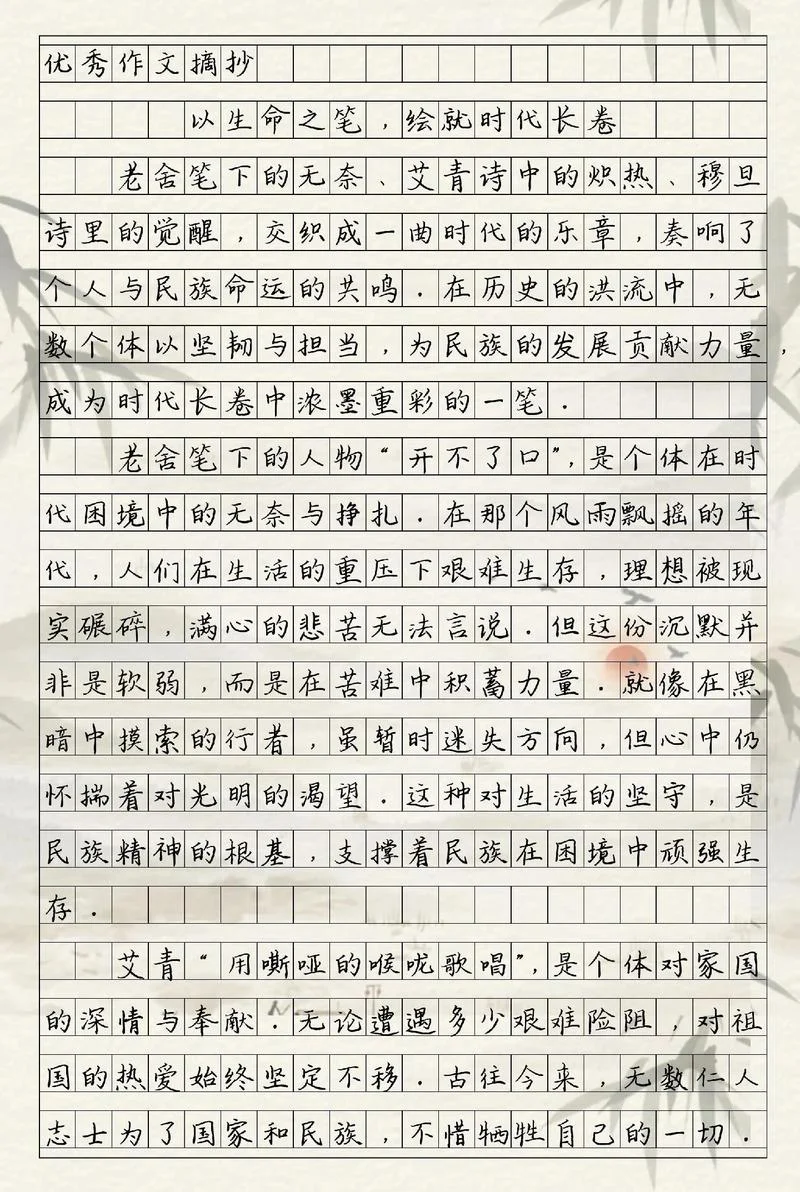 优秀作文摘抄
以生命之笔，绘就时代长卷
老舍笔下的无奈、艾青诗中的炽热、穆旦
诗里的觉醒，交织成一曲时代的乐章，奏响了
个人与民族命运的共鸣．在历史的洪流中，无
数个体以坚韧与担当，为民族的发展贡献力量，
成为时代长卷中浓墨重彩的一笔．
老舍笔下的人物“开不了口”，是个体在时
代困境中的无奈与挣扎．在那个风雨飘摇的年
代，人们在生活的重压下艰难生存，理想被现
实碾碎，满心的悲苦无法言说．但这份沉默并
非是软弱，而是在苦难中积蓄力量．就像在黑
暗中摸索的行者，虽暂时迷失方向，但心中仍
怀揣着对光明的渴望．这种对生活的坚守，是
民族精神的根基，支撑着民族在困境中顽强生
存．
艾青“用嘶哑的喉咙歌唱”，是个体对家国
的深情与奉献．无论遭遇多少艰难险阻，对祖
国的热爱始终坚定不移．古往今来，无数仁人
志士为了国家和民族，不惜牺牲自己的一切．